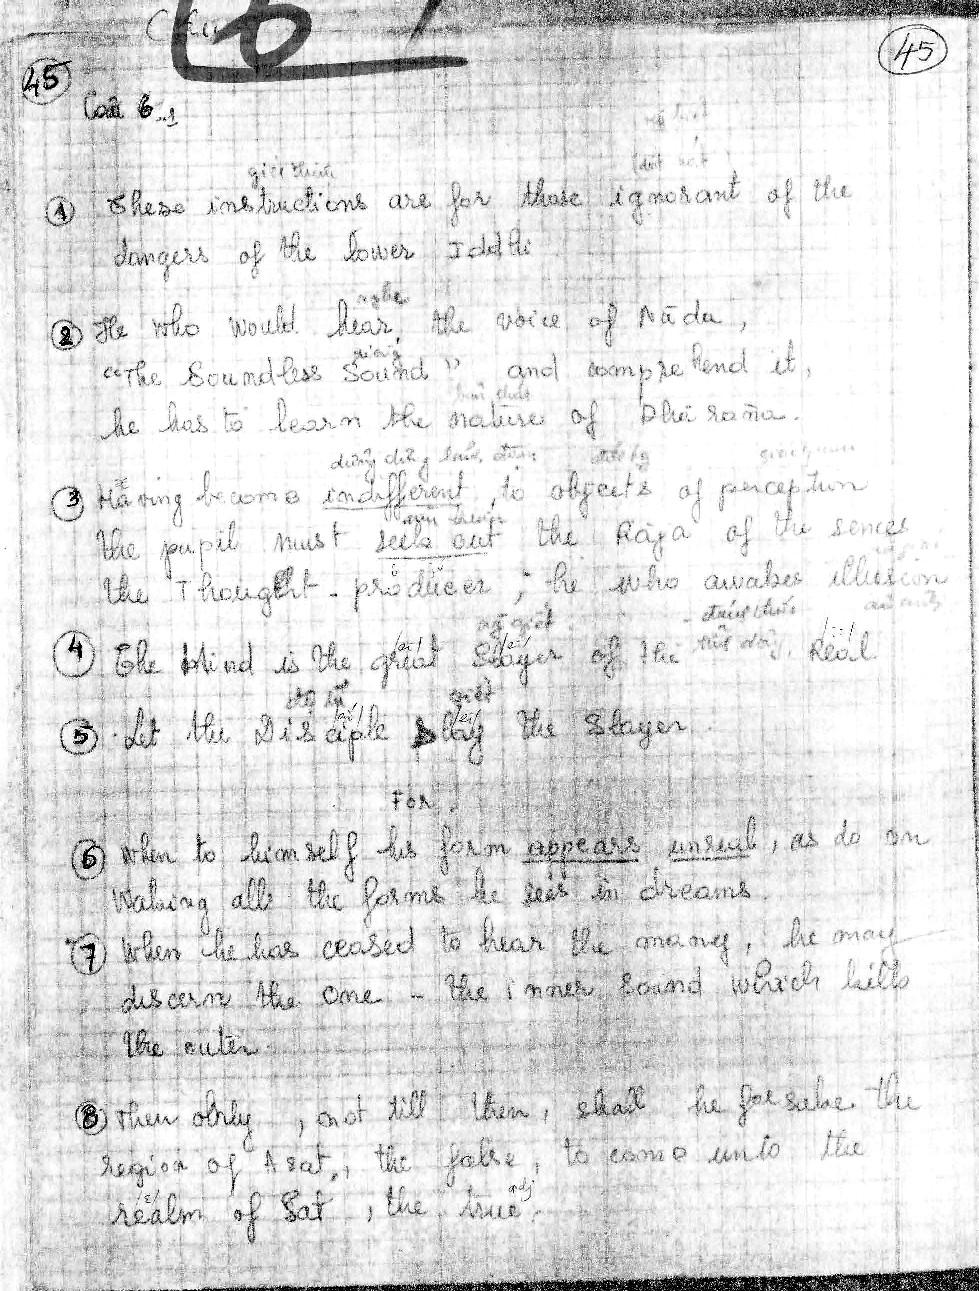 45
45
① These instructions are for those ignorant of the
dangers of the lower Iddhi
nghe
② He who would hear, the voice of Nāda,
"The Soundless Sound" and comprehend it,
he has to learn the nature of Dhāraña.
③ Having become indifferent to objects of perception
the pupil must seek out the Rāja of the sences
the Thought-producer; he who awakes illusion
④ The Mind is the great Slayer of the Real
giết
⑤ Let the Disciple Slay the Slayer
For
⑥ When to himself his form appears unreal, as do on
Waking all the forms he sees in dreams.
⑦ When he has ceased to hear the many, he may
discern the One - the inner Sound which kills
the outer.
⑧ Then only, not till then, shall he forsake the
region of Asat, the false, to come unto the
adj
realm of Sat, the true.